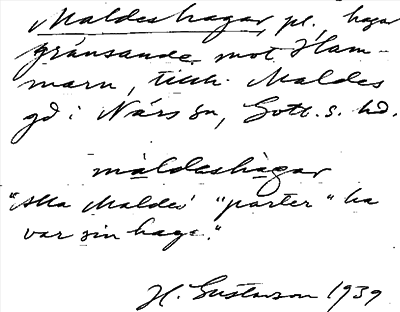 Maldeshagar, pl. hagar
gränsande mot Ham-
marn, tillh. Maldes
gd i Närs sn, Gotl. s. hd.
màldeshàgar
"Alla Maldes' "parter" ha
var sin hage."
H. Gustavson 1939